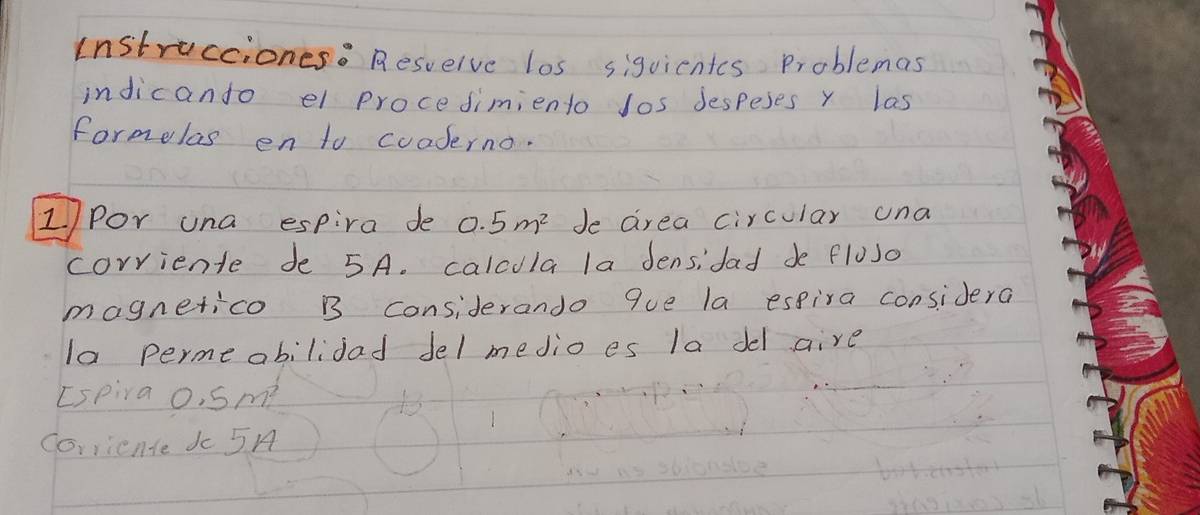 instrucciones: Resuelve los siguientes Problemas
indicando el Procedimiento los despejes y las
formulas en tu cuaderno.
1.) Por una espira de 0.5m² de área circular una
corriente de 5A. calcula la densidad de flujo
magnetico B considerando que la espira considera
la permeabilidad del medio es la del aire
Espira 0.5m²
Corriente de 5A